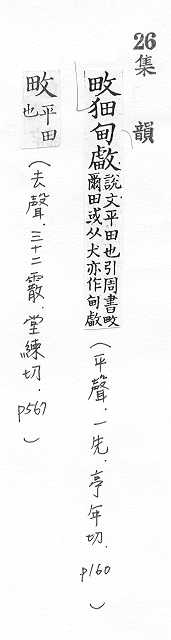 26集韻
畋狃甸䖒說文平田也引周書畋爾田或从犬亦作甸䖒(平聲.一先.亭年切.p160)
畋平田也(去聲.三十二霰.堂練切.p567)